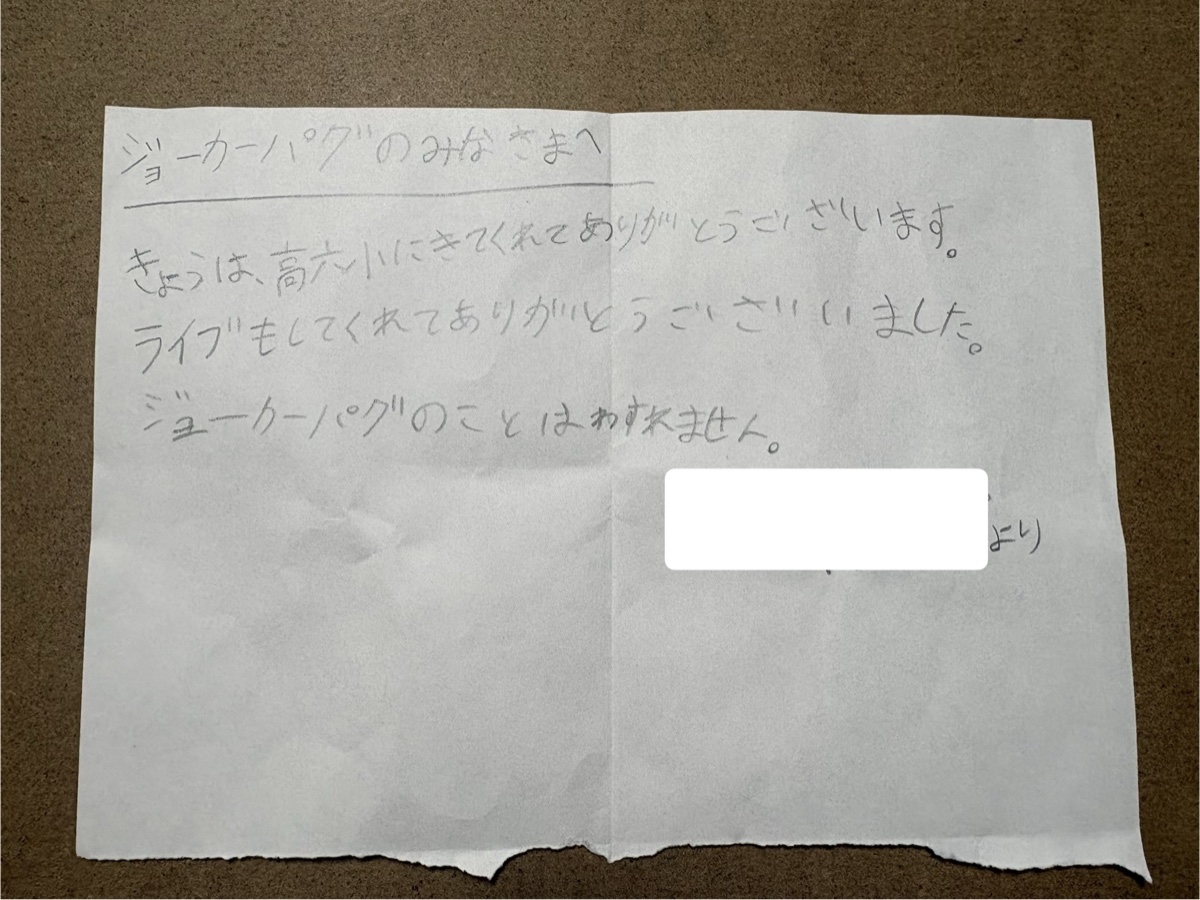 ジョーカーパグのみなさまへ
きょうは、高六小にきてくれてありがとうございます。
ライブもしてくれてありがとうございました。
ジョーカーパグのことはわすれません。
より